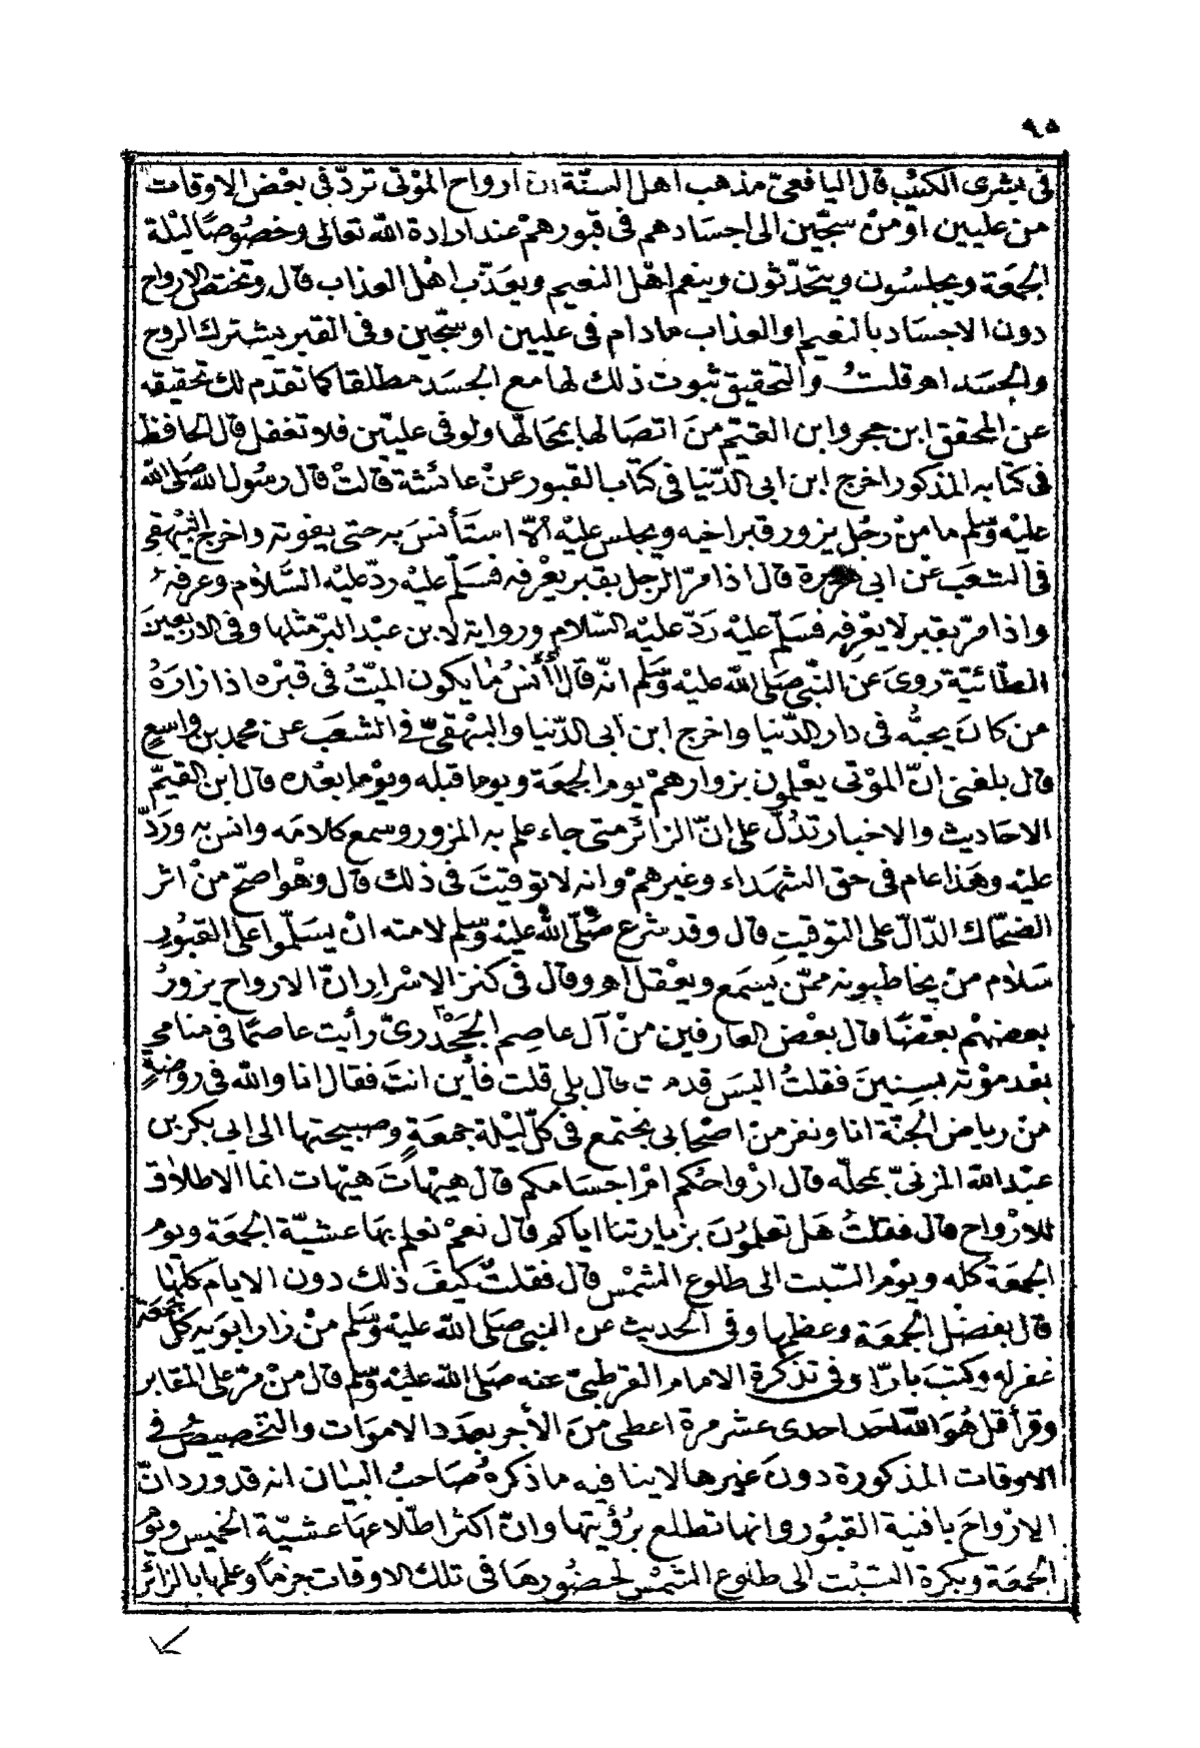 ٩٥
فى بشرى الكئيب قال اليافعىّ مذهب اهل السنّة انّ ارواح الموْتى تردّ فى بعْض الاوقات
من عليين اوْ منْ سجّين الى اجسادهم فى قبورهمْ عند ارادة اللّه تعالى وخصُوصًا ليْلة
الجمعَة ويجلسُون ويتحَدّثون وينعم اهْل النعيم ويعَذّب اهْل العذاب قال وتختصّ الارواح
دون الاجساد بالنعيم او العذاب مادام فى عليين او سجّين وفى القبر يشترك الروح
والجسَد اهـ قلتُ والتحقيق ثبوت ذلك لها مع الجسَد مطلقا كما تقدم لك تحقيقه
عن المحقق ابن حجر وابن القيّم منَ اتصالها بمحَالّها ولو فى عليّين فلا تغفل قال الحافظ
فى كتابه المذكور اخرج ابن ابى الدّنيا فى كتاب القبور عنْ عائشة قالتْ قال رسُول اللّه صَلى اللّه
عليْه وَسلم ما منْ رجُل يزور قبر اخيه ويجلس عليْه الاّ استَأنسَ به حتى يقوم واخرج البيْهقى
فى الشعَب عن ابى هريرة قال اذا مرّ الرّجل بقبر يعْرفه فسَلّم عليْه ردّ عليْه السَّلام وعرفه
واذا مرّ بقبر لا يعْرِفه فسَلّم عليْه رَدّ عليْه السّلام ورواية لابن عبْد البرّ مثلها وفى الاربعينَ
الطّائيّة روىَ عن النبّى صَلى اللّه عليْه وَسَلم انّه قال اٰنسُ ما يكون الميّتُ فى قبْره اذا زارَهُ
من كانَ يحبُّه فى دار الدّنيا واخرج ابن ابى الدّنيا والبيْهقىّ فى الشعَب عن محمد بن واسِعٍ
قال بلغنى انّ الموْتى يعْلمون بزوارهمْ يوم الجمعَة ويوما قبله ويوْما بعْده قال ابن القيّم
الاحاديث والاخبار تدُلّ على انّ الزائر متى جاء علم به المزور وسمع كلامَه وانس به ورَدّ
عليْه وهَذا عام فى حق الشهَداء وغيرهمْ وانه لا توقيتَ فى ذلك قال وهْو اصحّ منْ اثر
الضحّاك الدّالّ على التوقيت قال وقد شرع صَلّى اللّه عليْه وَسلم لامته انْ يسَلّموا على القبُور
سَلام منْ يخاطبونه ممّن يسْمَع ويعْقل اهـ وقال فى كنز الاسْرار انّ الارواح يزورُ
بعضهْم بعْضًا قال بعْض العارفين منْ آل عاصِم الجحْدرىّ رأيت عاصمًا فى منامى
بعْد موْته بسِنينَ فقلتُ اليسَ قد مت قال بلى قلت فأين انتَ فقال انا واللّه فى روضةٍ
منْ رياض الجنّة انا ونفر منْ اصْحابى نجتمع فى كلّ ليْلة جمعَةٍ وصبيحتها الى ابى بكر بن
عبْد اللّه المزنىّ بمحلّه قال ارْواحكم امْ اجسَامكم قال هيْهاتَ هيْهات انما الاطلاق
للارْواح قال فقلتُ هَل تعلمُونَ بزيارتنا اياكم قال نعمْ نعلم بهَا عشيّة الجمعَة ويوم
الجمعَة كله ويوْم السّبت الى طلوع الشمْس قال فقلتُ كيْفَ ذلك دون الايام كلّها
قال بفضْل الجمعَة وعظمِها وفى الحَديث عن النبى صَلى اللّه عليْه وَسَلم منْ زار ابوَيه كلّ جمعَة
غفر له وكتبَ بارّا وفى تذكرة الامام القرطبىّ عنه صَلى اللّه عليْه وَسلم قال منْ مرّ على المقابر
وقرأ قل هُوَ اللّه احَد احدى عشر مرة اعطى منَ الأجر بعَدد الامْوَات والتخصيصُ فى
الاوقات المذكورة دونَ غيرها لا ينافيه ما ذكرهُ صَاحبُ البيَان انه قد ورد انّ
الارْواحَ بافنية القبُور وانها تطلع برُؤْيتها وانّ اكثر اطّلاعهَا عشيّة الخميس ويوْم
الجمعَة وبكرة السّبْت الى طلوع الشمْس لحضُورهَا فى تلك الاوقات جزمًا وعلمها بالزائر